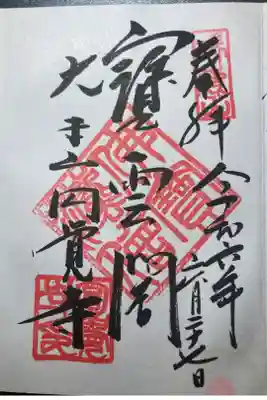 奉拝 令和六年
六月二十七日
寶雲閣
大本山円覺寺